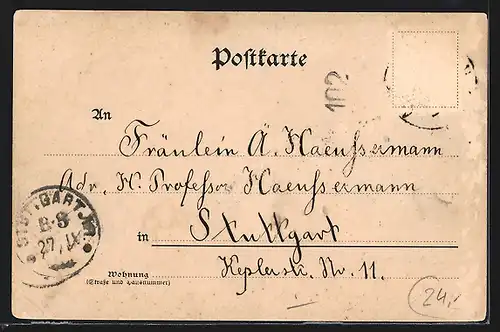 Postkarte
102
An
Fräulein Ä. Haeussermann
Adr. H. Professor Haeussermann
STUTTGART
B-8
27. IX
in Stuttgart
Keplerstr. Nr. 11.
Wohnung
(Straße und Hausnummer)
24,-